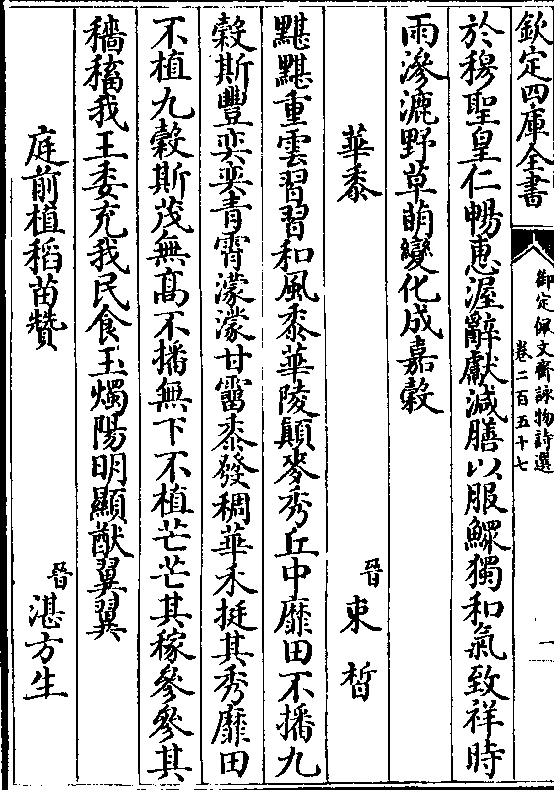 欽定四庫全書
御定佩文齋詠物詩選
卷二百五十七
一
於穆聖皇仁暢惠渥辭獻減膳以服鰥獨和氣致祥時
雨滲漉野草萌變化成嘉穀
華黍
晉 束皙
黮黮重雲習習和風黍華陵顛麥秀丘中靡田不播九
穀斯豐奕奕青霄濛濛甘霤黍發稠華禾挺其秀靡田
不植九穀斯茂無高不播無下不植芒芒其稼參參其
穡稸我王委充我民食玉燭陽明顯猷翼翼
庭前植稻苗贊
晉 湛方生